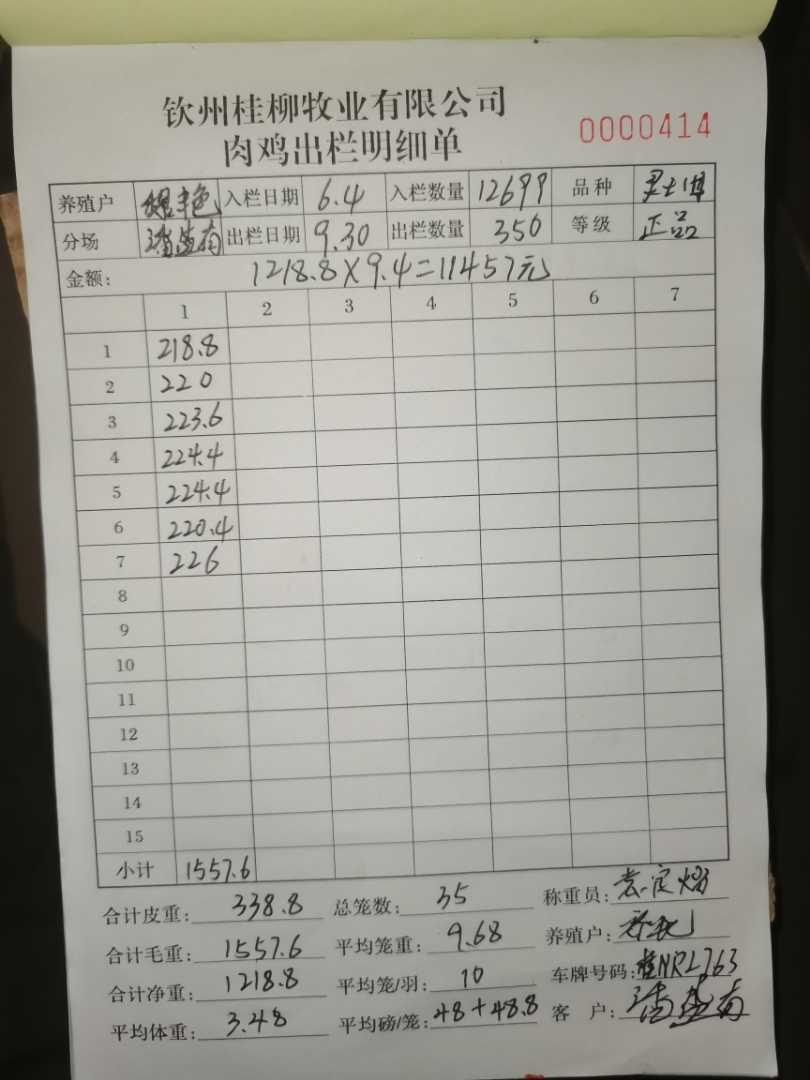 钦州桂柳牧业有限公司
肉鸡出栏明细单
0000414
养殖户 入栏日期 6.4 入栏数量 12699 品种
分场 出栏日期 9.30 出栏数量 350 等级 正品
金额: 1218.8×9.4=11457元
1 2 3 4 5 6 7
1 218.8
2 220
3 223.6
4 224.4
5 224.4
6 220.4
7 226
8
9
10
11
12
13
14
15
小计 1557.6
合计皮重: 338.8 总笼数: 35 称重员:
合计毛重: 1557.6 平均笼重: 9.68 养殖户:
合计净重: 1218.8 平均笼/羽: 10 车牌号码: 桂NRL763
平均体重: 3.48 平均磅/笼: 48+48.8 客 户: